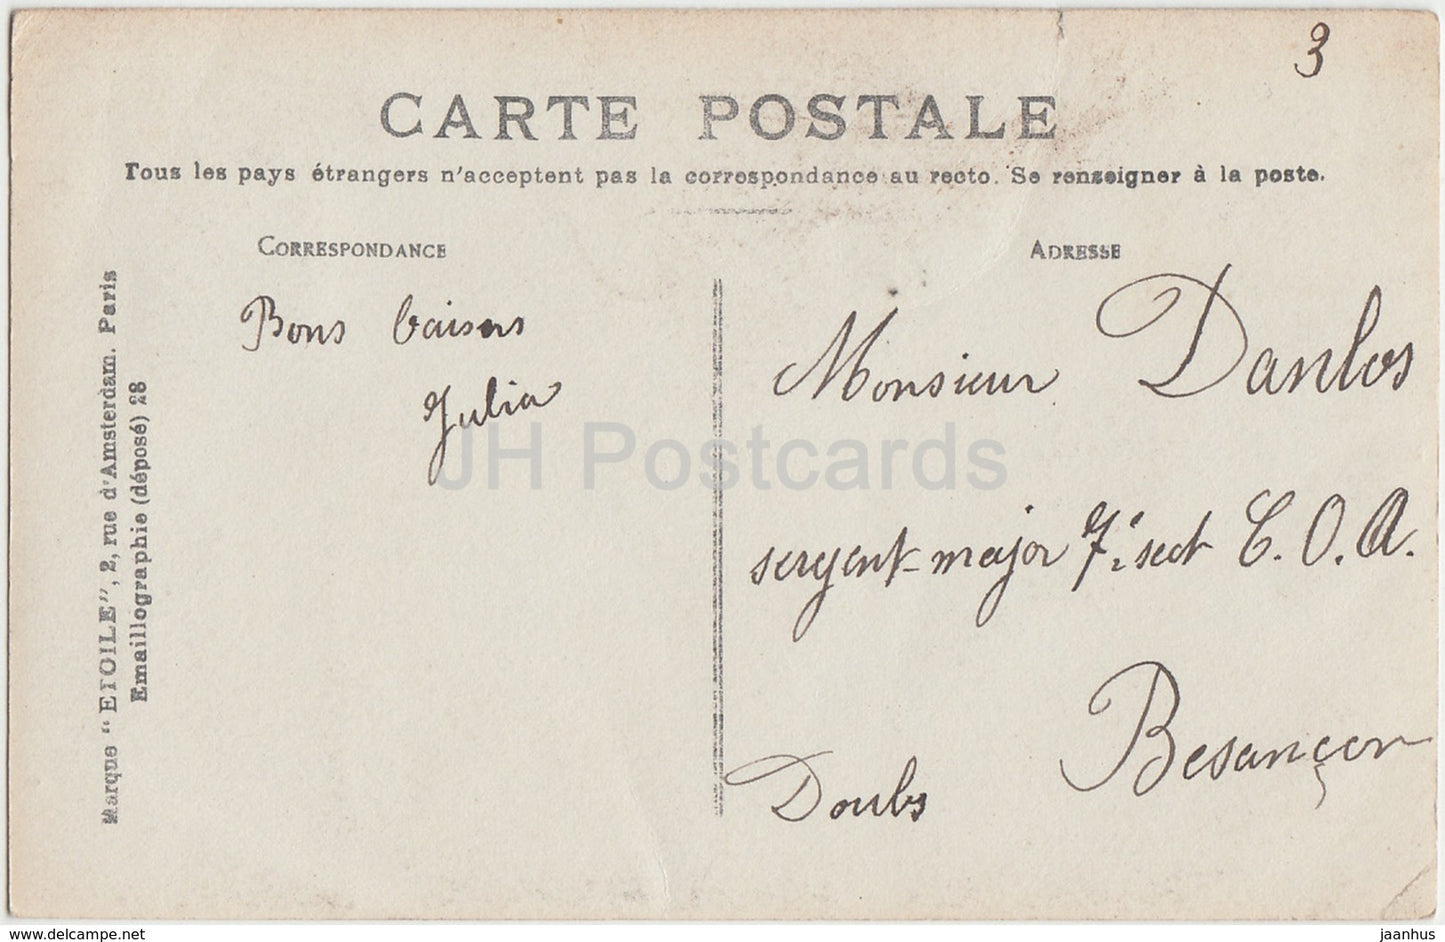 3
CARTE POSTALE
Tous les pays étrangers n'acceptent pas la correspondance au recto. Se renseigner à la poste.
CORRESPONDANCE
ADRESSE
Bons baisers
Julia
Monsieur Danlos
sergent-major 7e sect C. O. A.
Besançon
Doubs
Marque "ETOILE", 2, rue d'Amsterdam. Paris
Emaillographie (déposé) 28
JH Postcards
www.delcampe.net
jaanhus